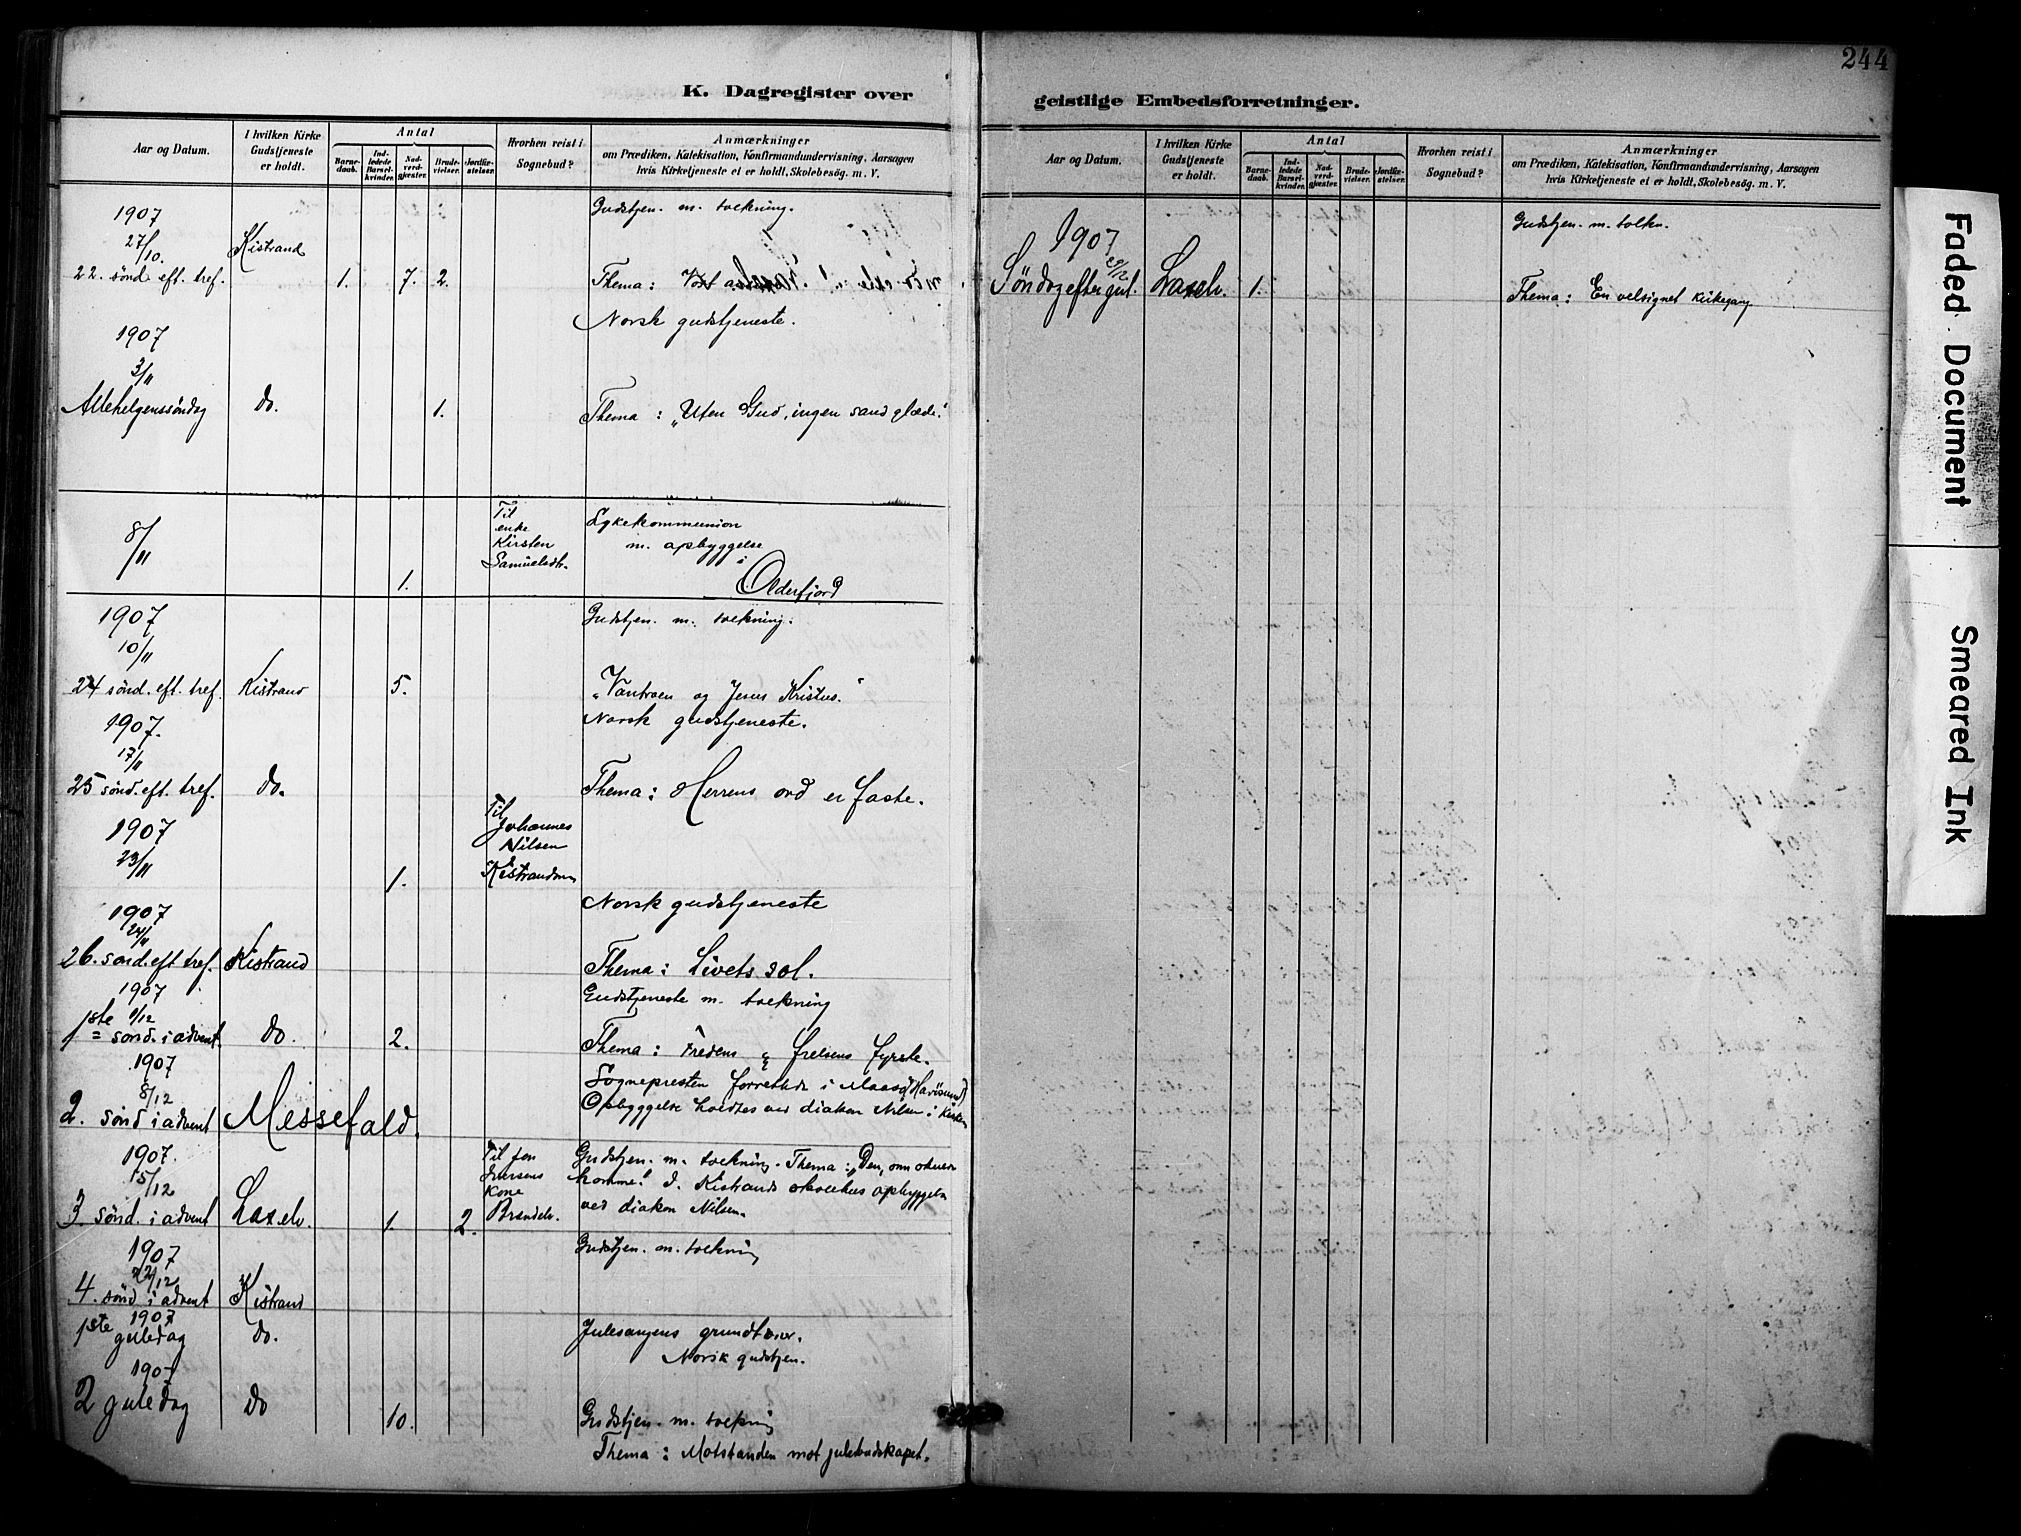 244
K. Dagregister over
geistlige Embedsforretninger.
Aar og Datum.
I hvilken Kirke Gudstjeneste er holdt.
Antal
Barne-daab.
Ind-ledede Barsel-kvinder.
Nad-verd-gjæster.
Brude-vielser.
Jordfæ-stelser.
Hvorhen reist i Sognebud?
Anmærkninger
om Prædiken, Katekisation, Konfirmandundervisning, Aarsagen
hvis Kirketjeneste ei er holdt, Skolebesøg. m. V.
1907
Gudstjen. m. tolkning.
27/10. Kistrand
22. sønd. eft. tref. 1. 7. 2. Thema: Vort
Norsk gudstjeneste.
1907
3/11
Allehelgenssøndag do. 1. Thema: „Uten Gud, ingen sand glæde."
8/11
Til enke Kirsten Samuelsdtr.
1.
Sykekommunion
m. opbyggelse
i
Olderfjord
1907
Gudstjen. m. tolkning.
10/11
24 sønd. eft. tref. Kistrand 5. „Vantroen og Jesus Kristus."
1907.
Norsk gudstjeneste.
17/11
25 sønd. eft. tref. do. Thema: Herrens ord er faste.
1907
23/11
1.
Til Johannes Nilsen
1907
Norsk gudstjeneste
24/11
26. sønd. eft tref. Kistrand Thema: Livets sol.
1907
Gudstjeneste m. tolkning
1ste 1/12
sønd. i advent. do. 2. Thema: Fredens & frelsens fyrste.
1907
Sognepresten forrettede i Maasø (Havösund)
8/12
2. sønd i advent Messefald.
Opbyggelse holdtes ved diakon Nilsen i kirken
1907.
15/12
3. sønd. i advent Laxelv. 1. 2.
Til Jon Iversens kone Brendelv.
Gudstjen. m. tolkning. Thema: „Den, som skulde
komme." I Kistrands skolehus opbyggelse
ved diakon Nilsen.
1907
Gudstjen. m. tolkning
22/12
4. sønd i advent Kistrand
1907
1ste juledag do. Julesangens grundtoner.
Norsk gudstjen.
1907
2 juledag do 10. Gudstjen. m. tolkning
Thema: Motstanden mot julebudskapet.
Aar og Datum.
I hvilken Kirke Gudstjeneste er holdt.
Antal
Barne-daab.
Ind-ledede Barsel-kvinder.
Nad-verd-gjæster.
Brude-vielser.
Jordfæ-stelser.
Hvorhen reist i Sognebud?
Anmærkninger
om Prædiken, Katekisation, Konfirmandundervisning, Aarsagen
hvis Kirketjeneste ei er holdt, Skolebesøg. m. V.
1907
Gudstjen. m. tolkn.
29/12
Søndag efter jul. Laxelv. 1. Thema: En velsignet kirkegang
Faded Document
Smeared Ink